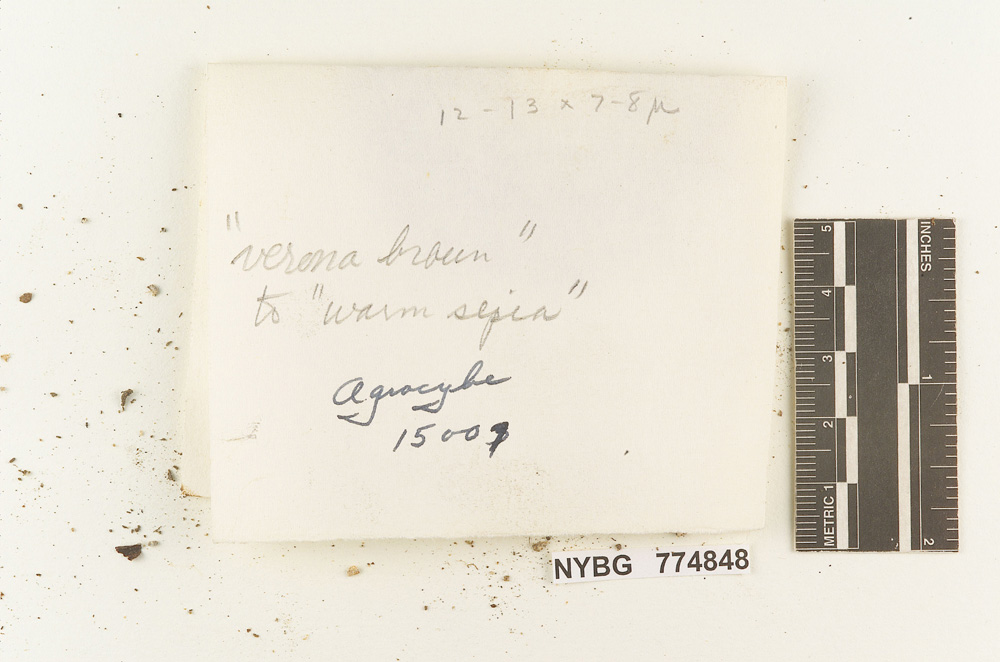 12-13 x 7-8μ
"verona brown"
to "warm sepia"
Agrocybe
15007
NYBG 774848
INCHES
1
2
METRIC 1
2
3
4
5